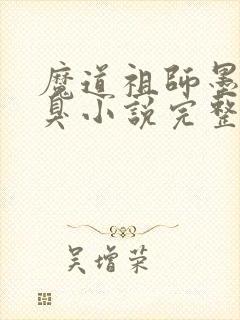 魔道祖師墨
臭小説完整
吴增荣